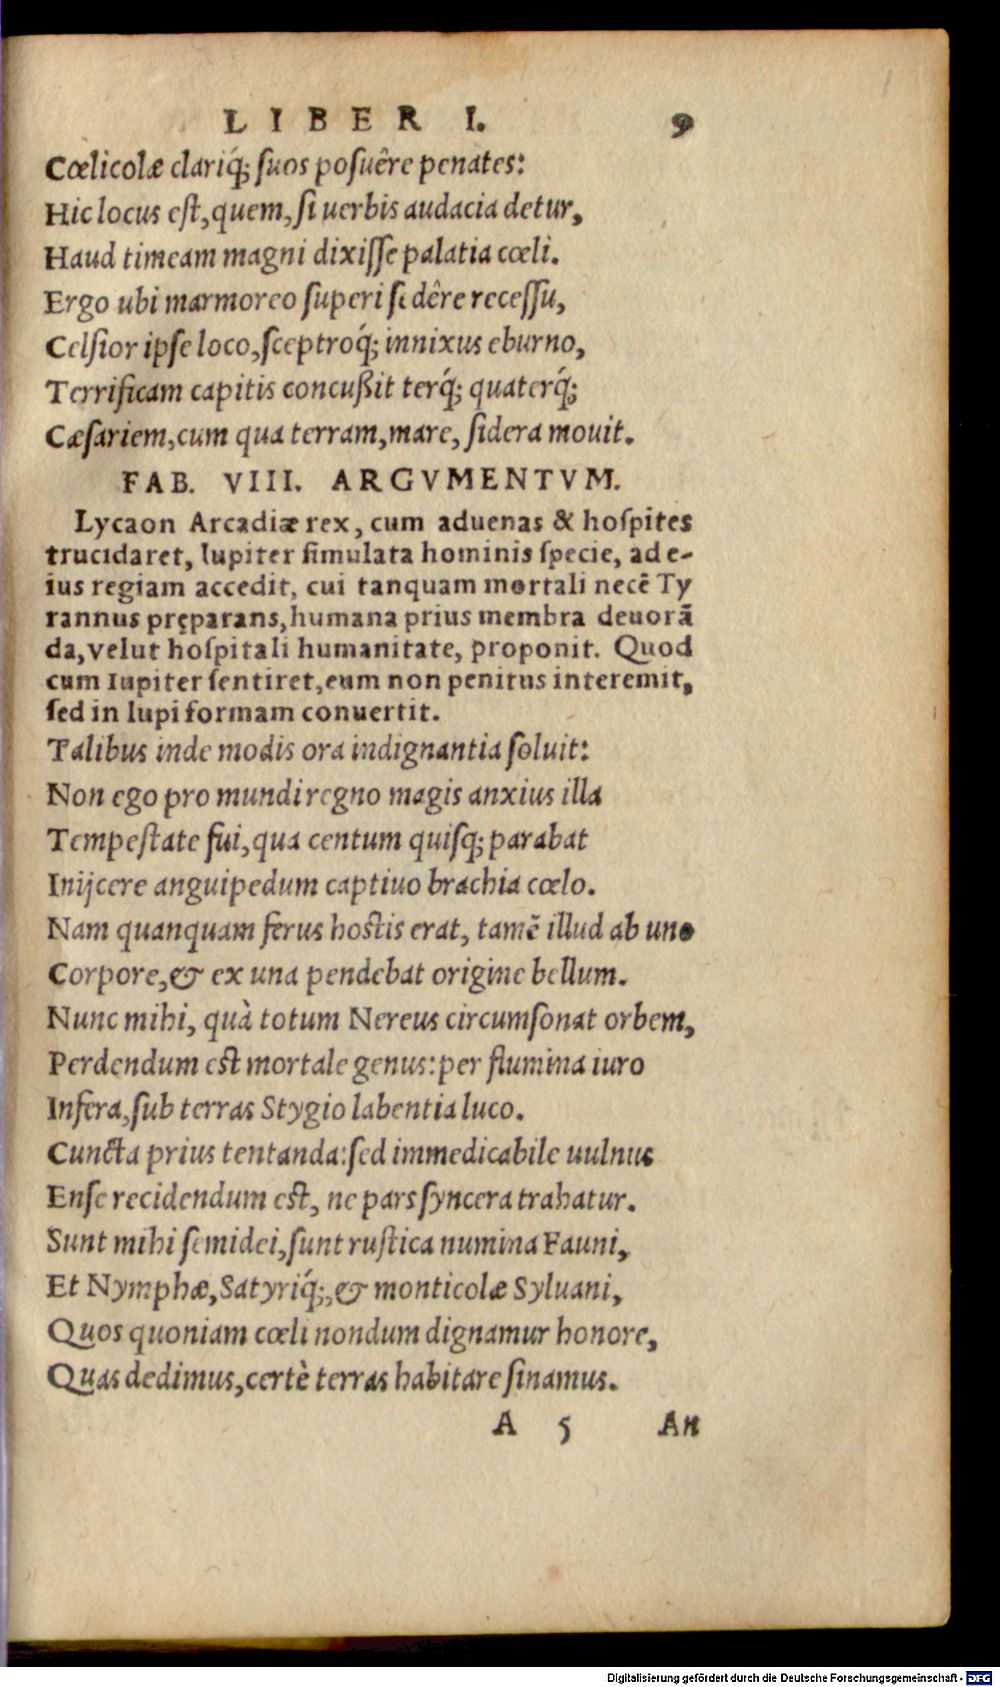 LIBER I. 9
Cœlicolæ clariq́; ſuos poſuêre penates:
Hic locus eſt, quem, ſi uerbis audacia detur,
Haud timeam magni dixiſſe palatia cœli.
Ergo ubi marmoreo ſuperi ſedêre receſſu,
Celſior ipſe loco, ſceptroq́; innixus eburno,
Terrificam capitis concußit terq́; quaterq́;
Cæſariem, cum qua terram, mare, ſidera mouit.
FAB. VIII. ARGVMENTVM.
Lycaon Arcadiæ rex, cum aduenas & hoſpites
trucidaret, Iupiter ſimulata hominis ſpecie, ad e-
ius regiam accedit, cui tanquam mortali necē Ty
rannus pręparans, humana prius membra deuorā
da, velut hoſpitali humanitate, proponit. Quod
cum Iupiter ſentiret, eum non penitus interemit,
ſed in lupi formam conuertit.
Talibus inde modis ora indignantia ſoluit:
Non ego pro mundi regno magis anxius illa
Tempeſtate fui, qua centum quiſq; parabat
Inijcere anguipedum captiuo brachia cœlo.
Nam quanquam ferus hoſtis erat, tamē illud ab uno
Corpore, & ex una pendebat origine bellum.
Nunc mihi, quà totum Nereus circumſonat orbem,
Perdendum eſt mortale genus: per flumina iuro
Infera, ſub terras Stygio labentia luco.
Cuncta prius tentanda: ſed immedicabile uulnus
Enſe recidendum eſt, ne pars ſyncera trahatur.
Sunt mihi ſemidei, ſunt ruſtica numina Fauni,
Et Nymphæ, Satyriq́;, & monticolæ Syluani,
Quos quoniam cœli nondum dignamur honore,
Quas dedimus, certè terras habitare ſinamus.
A 5 An
Digitalisierung gefördert durch die Deutsche Forschungsgemeinschaft - DFG